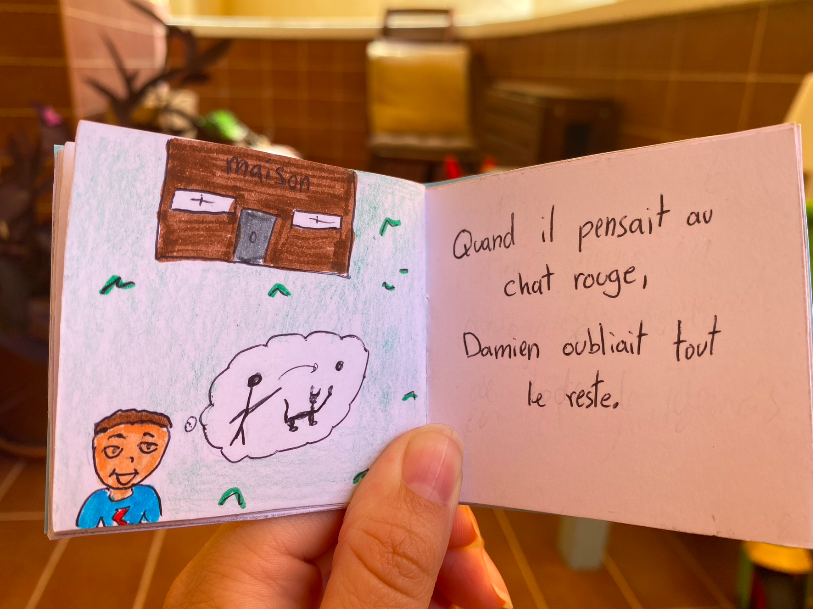 maison
Quand il pensait au
chat rouge,
Damien oubliait tout
le reste.